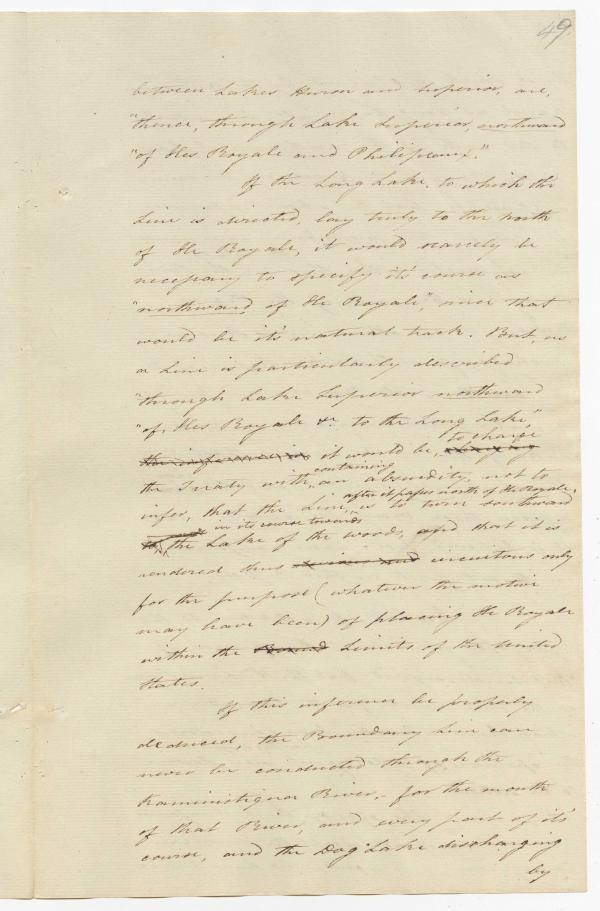 49.
between Lakes Huron and Superior, are,
"thence, through Lake Superior, northward
"of Iles Royale and Philipeaux."
If the Long Lake, to which the
Line is directed, lay truly to the north
of Ile Royale, it would scarcely be
necessary to specify it's course as
"northward of Ile Royale", since that
would be it's natural track. But, as
a Line is particularly described
"through Lake Superior northward
"of Iles Royale &c. to the Long Lake,"
to charge
the inference is, it would be,
containing
the Treaty with, an absurdity, not to
after it passes north of Ile Royale,
infer, that the Line, is to turn southward
in its course towards
the Lake of the woods, and that it is
rendered thus circuitous only
for the purpose (whatever the motive
may have been) of placing Ile Royale
within the Bound Limits of the United
States.
If this inference be properly
deduced, the Boundary Line can
never be conducted through the
Kaministiquia River,- for the mouth
of that River, and every part of it's
course, and the Dog Lake discharging
by